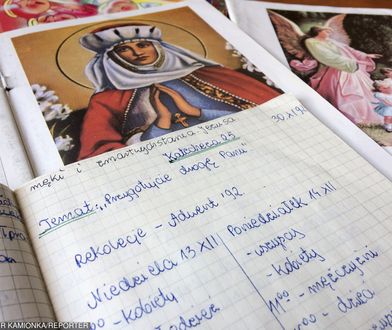 męki i zmartwychstania Jezusa
30 XI 92
Katecheza 25
Temat: „Przygotujcie drogę Panu"
Rekolekcje - Adwent '92
Niedziela 13 XII
00 - kobiety
Poniedziałek 14 XII
- wszyscy
- kobiety
11 00 - mężczyźni
00 - dzieci
R KAMIONKA/REPORTER